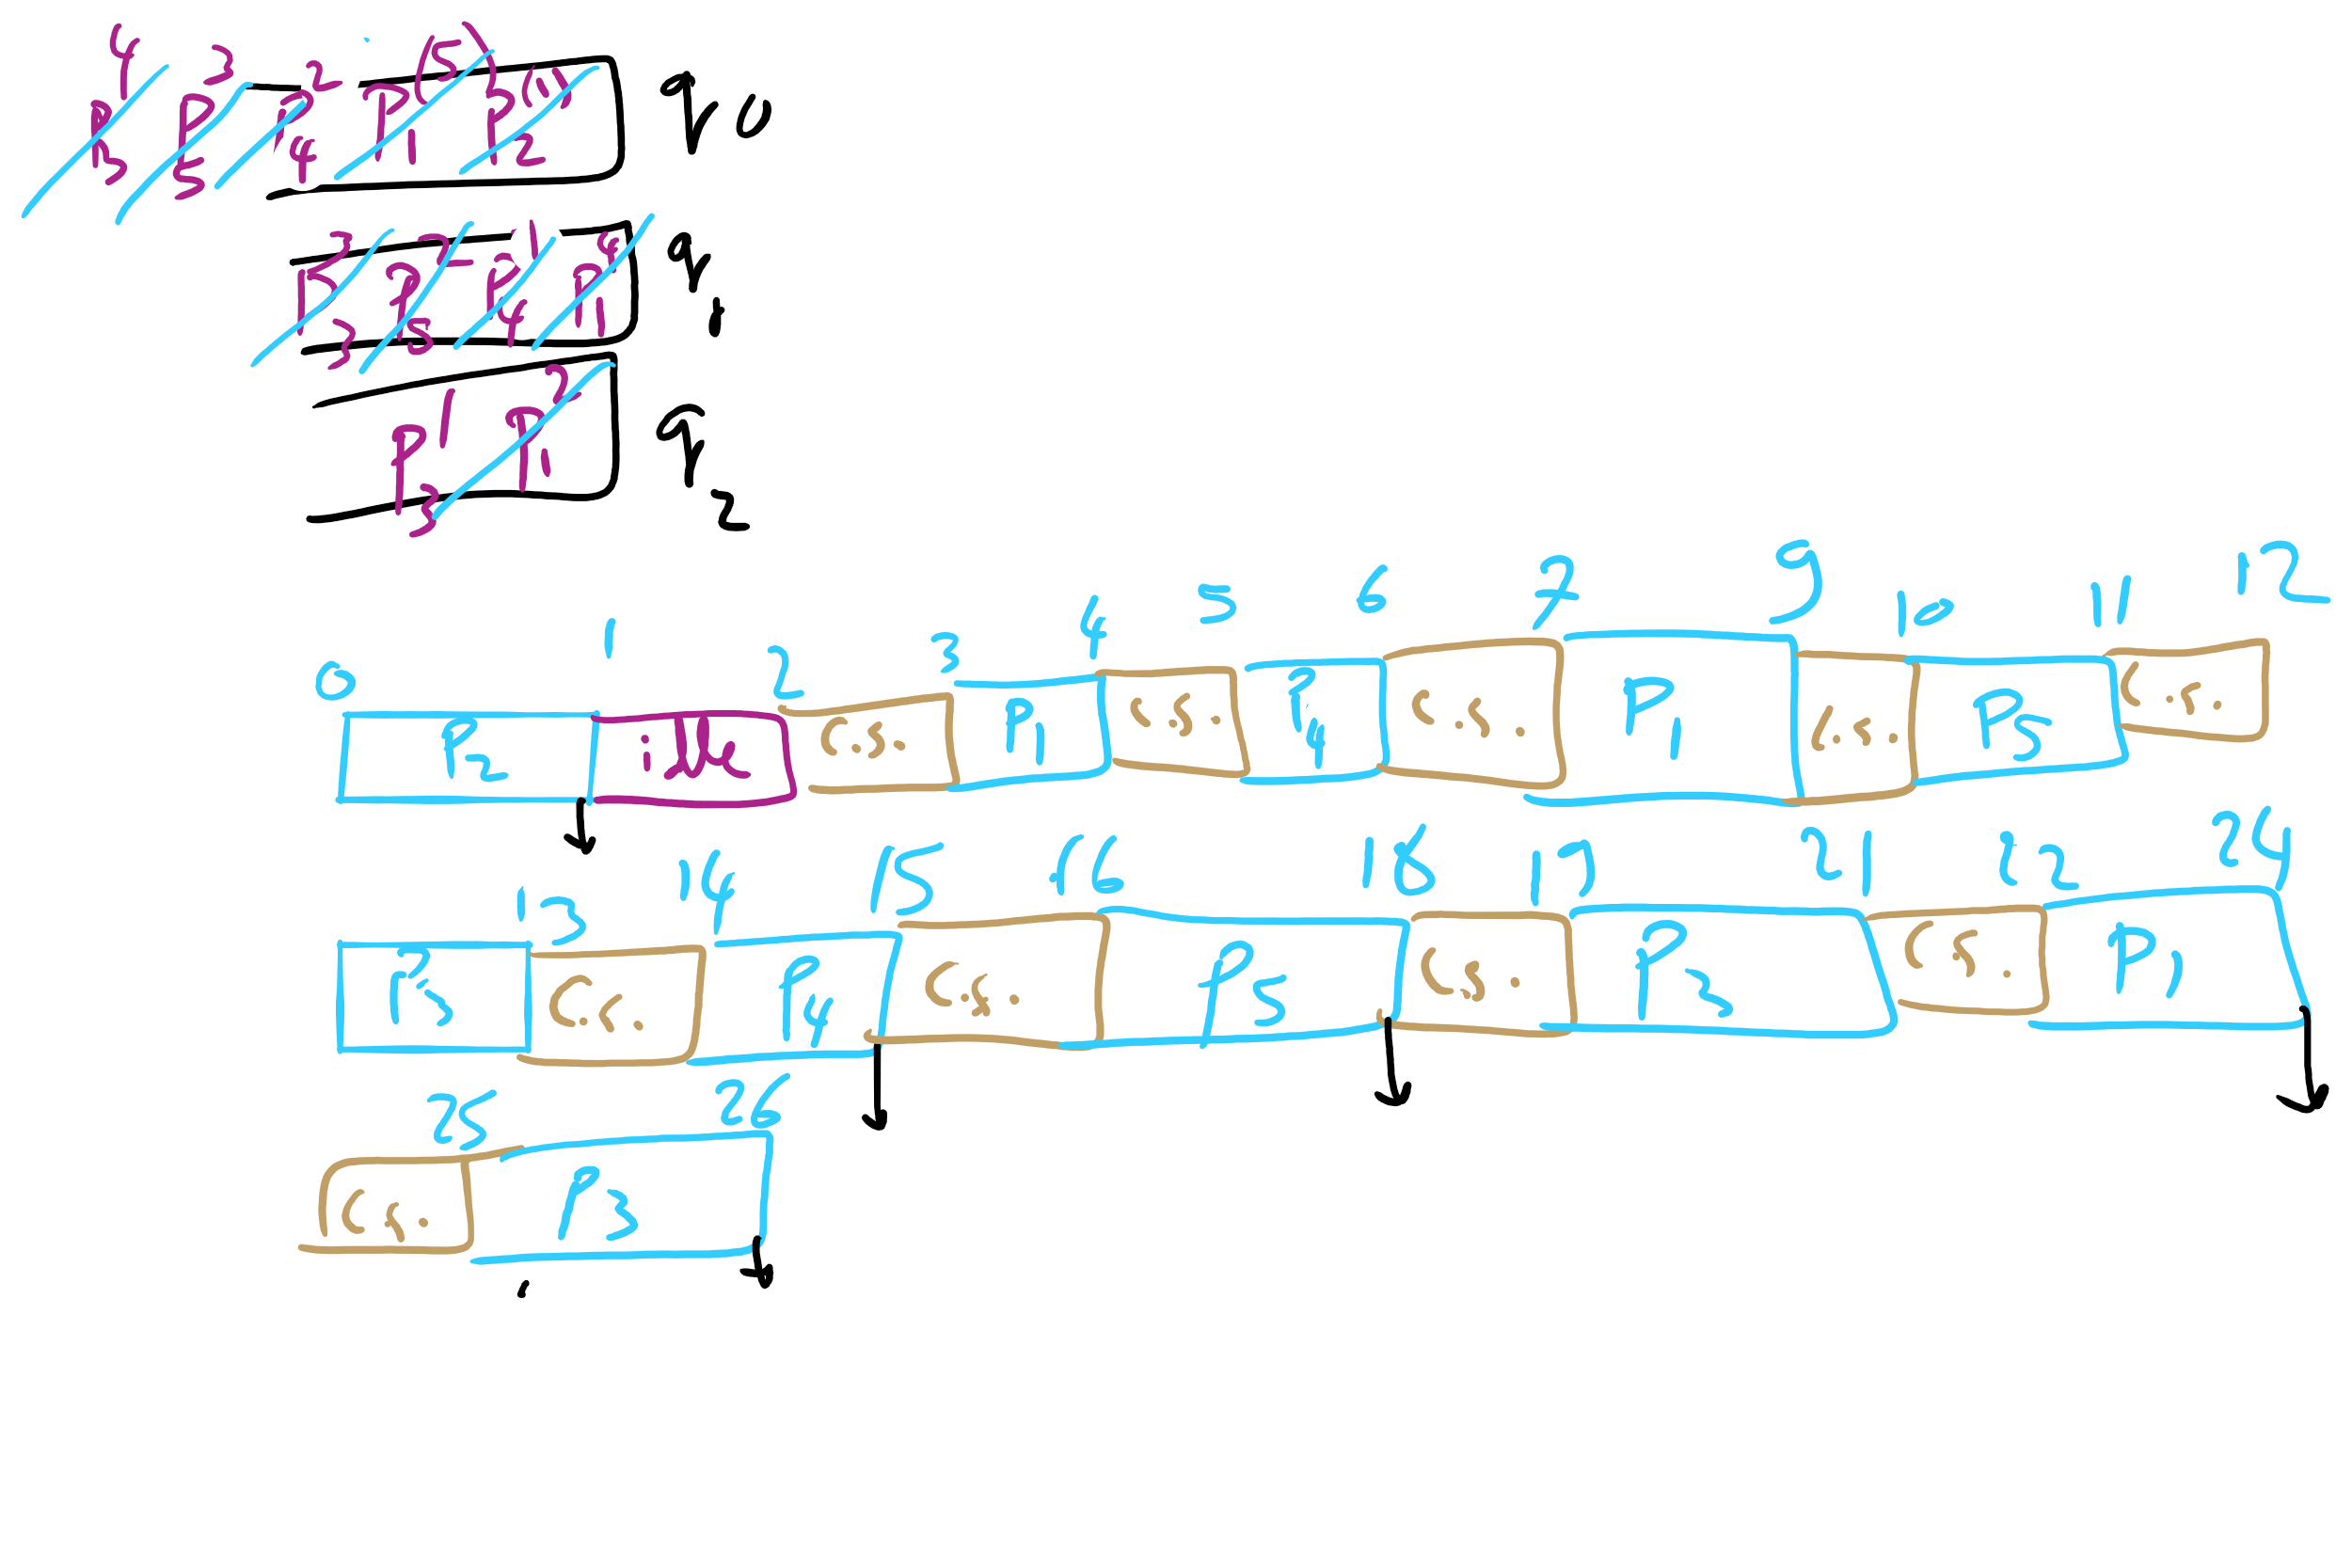 4 3 2 (5) (1)
P3 P5 P4 P1 P2 q0
3 2 1 4
P3 P5 P4 P1 q1
1 2
P3 P1 q2
0 1 2 3 4 5 6 7 9 10 11 12
P2 idle c.s. P1 c.s. P4 c.s. P1 c.s. P5 c.s.
13 14 15 16 18 19 21 22 24
P3 c.s. P4 c.s. P5 c.s. P3 c.s. P1
25 26
c.s. P3